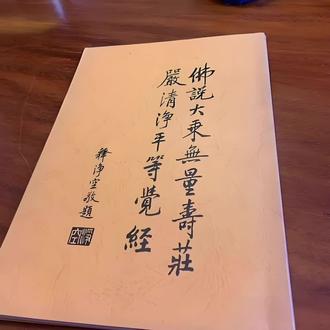 佛說大乘無量壽莊
嚴清淨平等覺經
釋淨空敬題
淨空